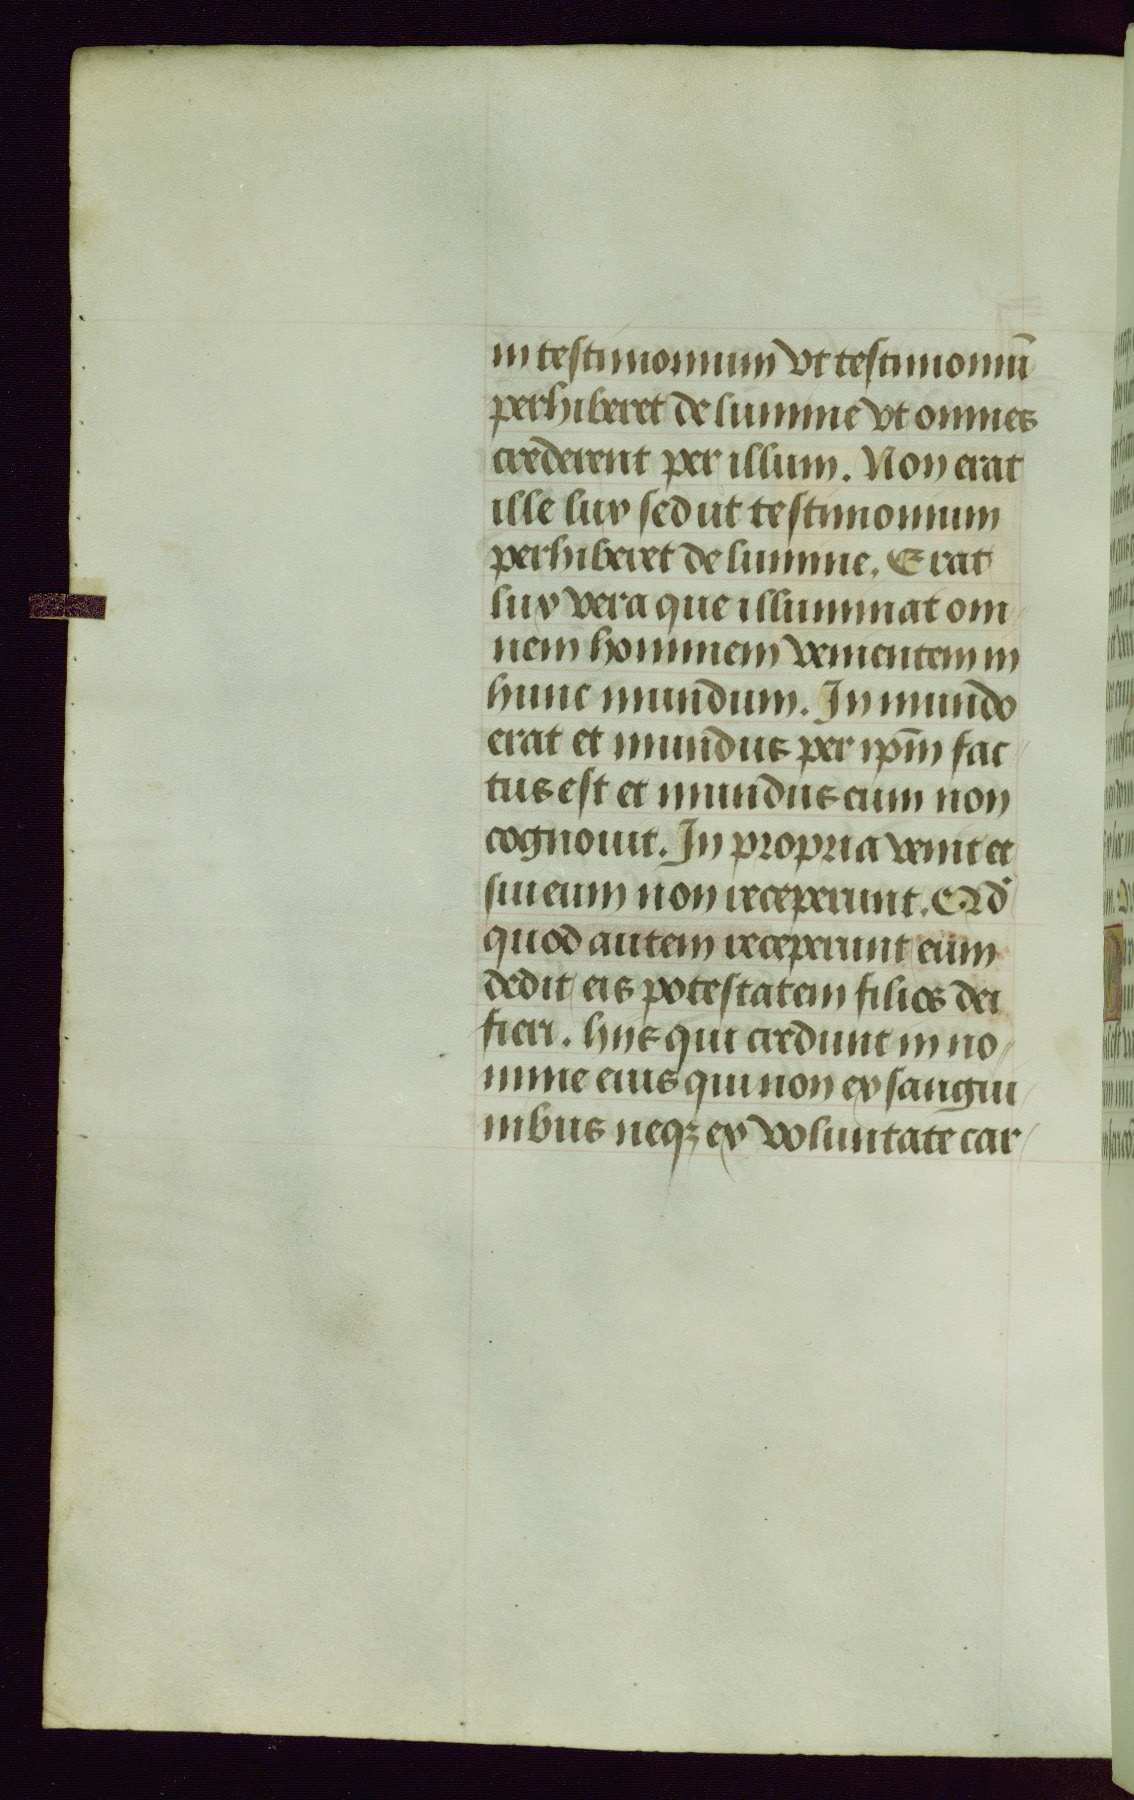 in testimonium vt testimoniū
perhiberet de lumine vt omnes
crederent per illum. Non erat
ille lux sed ut testimonium
perhiberet de lumine. Erat
lux vera que illuminat om
nem hominem venientem in
hunc mundum. In mundo
erat et mundus per ip̄m fac
tus est et mundus eum non
cognouit. In propria venit et
sui eum non receperunt.
quod autem receperunt eum
dedit eis potestatem filios dei
fieri. hijs qui credunt in no
mine eius qui non ex sangui
nibus neqꝫ ex voluntate car